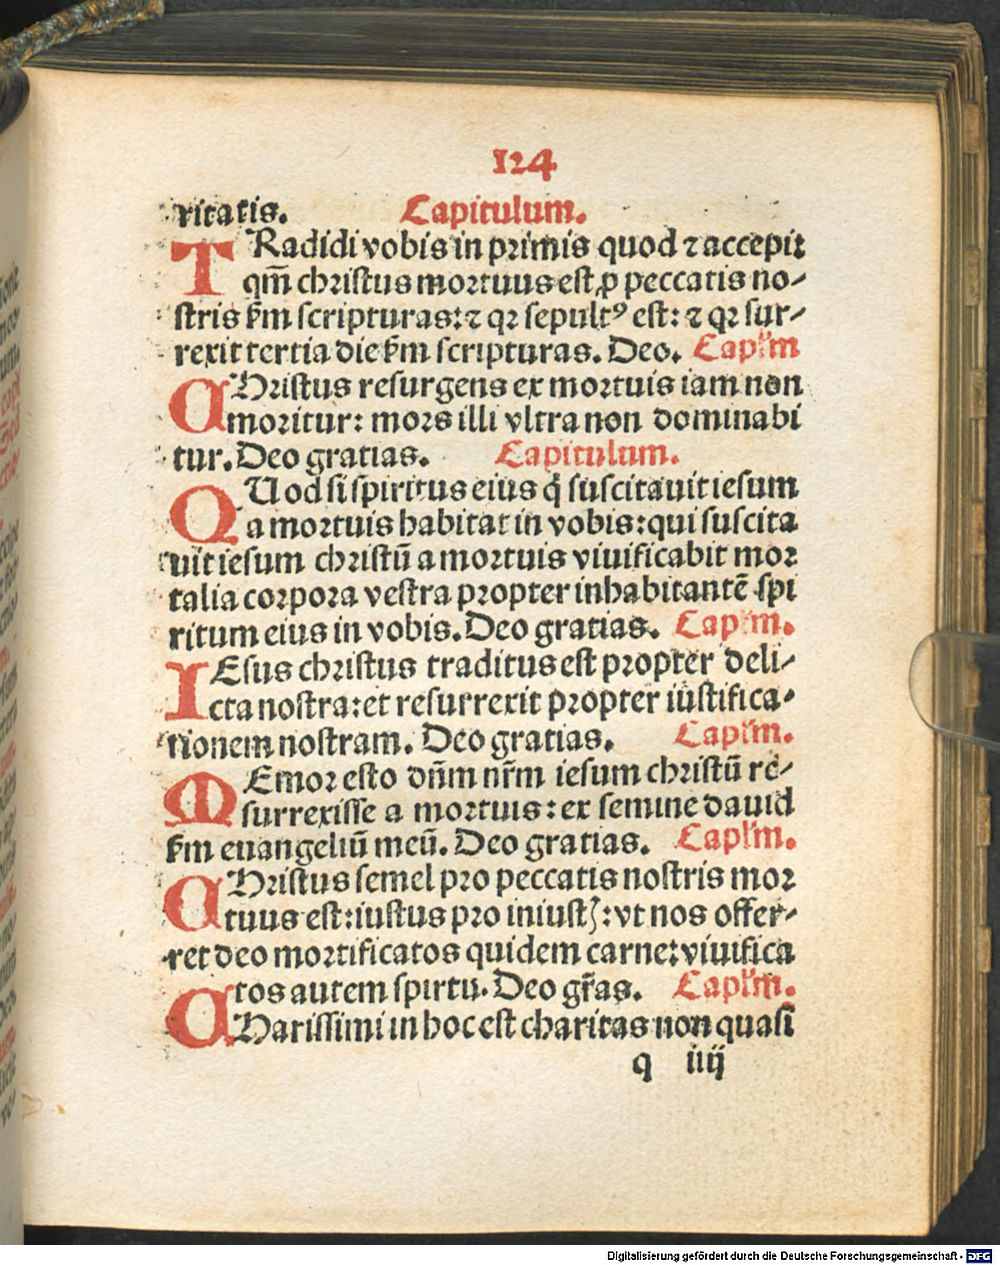 124
ritatis. Capitulum.
TRadidi vobis in primis quod ⁊ accepi:
qm̄ christus mortuus est ꝓ peccatis no-
stris ẜm scripturas: ⁊ qꝛ sepultꝰ est: ⁊ qꝛ sur-
rexit tertia die ẜm scripturas. Deo. Capl'm
CHristus resurgens ex mortuis iam non
moritur: mors illi vltra non dominabi
tur. Deo gratias. Capitulum.
QUod si spiritus eius q̇ suscitauit iesum
a mortuis habitat in vobis: qui suscita
uit iesum christū a mortuis viuificabit mor
talia corpora vestra propter inhabitantē spi
ritum eius in vobis. Deo gratias. Capl'm.
IEsus christus traditus est propter deli-
cta nostra: et resurrexit propter iustifica-
tionem nostram. Deo gratias. Capl'm.
MEmor esto dn̄m nr̄m iesum christū re-
surrexisse a mortuis: ex semine dauid
ẜm euangeliū meū. Deo gratias. Capl'm.
CHristus semel pro peccatis nostris mor
tuus est: iustus pro iniustꝭ: vt nos offer-
ret deo mortificatos quidem carne: viuifica
tos autem spirtu. Deo gr̄as. Capl'm.
CHarissimi in hoc est charitas non quasi
q iiij
Digitalisierung gefördert durch die Deutsche Forschungsgemeinschaft - DFG